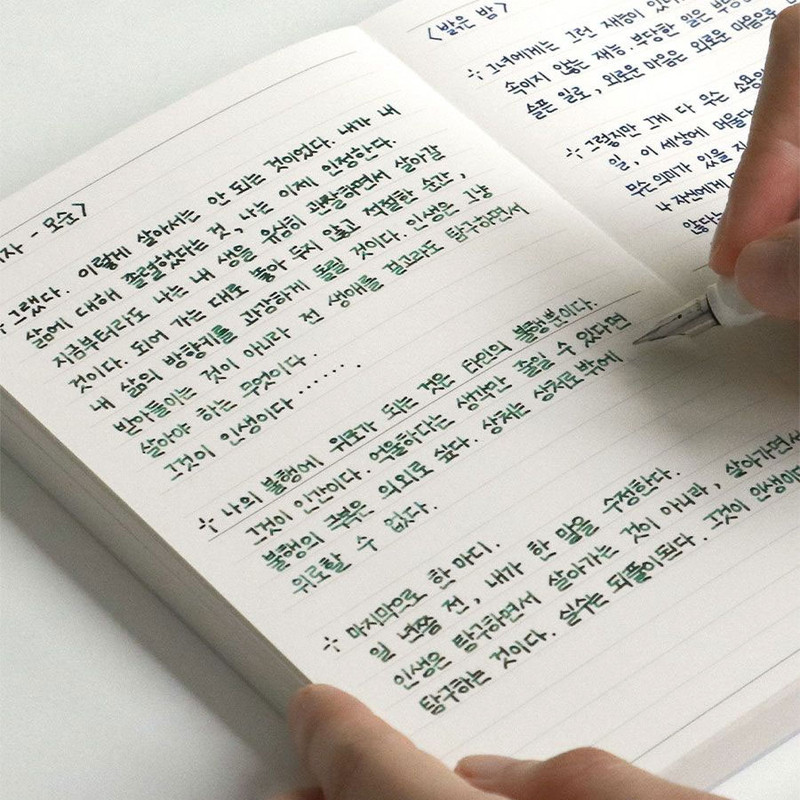 자 - 모순>
그랬다. 이렇게 살아서는 안 되는 것이었다. 내가 내
삶에 대해 졸렬했다는 것, 나는 이제 인정한다.
지금부터라도 나는 내 생을 유심히 관찰하면서 살아갈
것이다. 되어 가는 대로 놓아 두지 않고 적절한 순간,
내 삶의 방향키를 과감하게 돌릴 것이다. 인생은 그냥
받아들이는 것이 아니라 전 생애를 걸고라도 탐구하면서
살아야 하는 무엇이다.
그것이 인생이다........
나의 불행에 위로가 되는 것은 타인의 불행뿐이다.
그것이 인간이다. 억울하다는 생각만 줄일 수 있다면
불행의 극복은 의외로 쉽다. 상처는 상처로밖에
위로할 수 없다.
마지막으로 한 마디.
일 년쯤 전, 내가 한 말을 수정한다.
인생은 탐구하면서 살아가는 것이 아니라, 살아가면서
탐구하는 것이다. 실수는 되풀이된다. 그것이 인생이다
<밝은 밤>
그녀에게는 그런 재능이 있
속이지 않는 재능. 부당한 일은 부당
슬픈 일로, 외로운 마음은 외로운 마음으로
그렇지만 그게 다 무슨 소용
일, 이 세상에 머물다
무슨 의미가 있을 지
나 자신에게
않다는